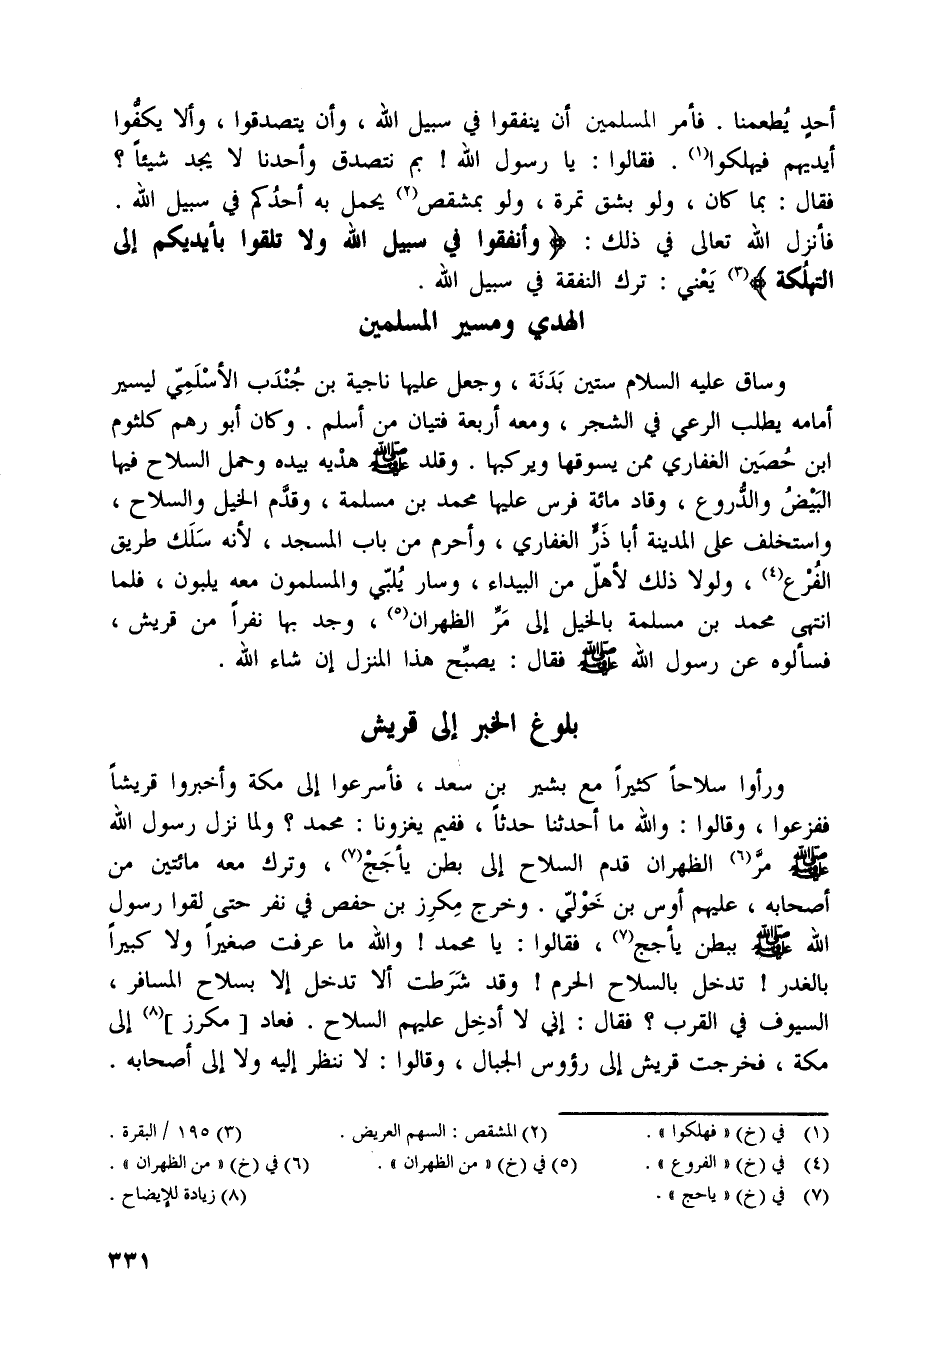 أحدٍ يُطعمنا . فأمر المسلمين أن ينفقوا في سبيل الله ، وأن يتصدقوا ، وألا يكفُّوا
أيديهم فيهلكوا(١) . فقالوا : يا رسول الله ! بم نتصدق وأحدنا لا يجد شيئاً ؟
فقال : بما كان ، ولو بشق تمرة ، ولو بمشقص(٢) يحمل به أحدُكم في سبيل الله .
فأنزل الله تعالى في ذلك : ﴿ وأنفقوا في سبيل الله ولا تلقوا بأيديكم إلى
التهلُكة ﴾(٣) يَعْني : ترك النفقة في سبيل الله .
الهدي ومسير المسلمين
وساق عليه السلام ستين بَدَنَة ، وجعل عليها ناجية بن جُنْدَب الأسْلَمِيّ ليسير
أمامه يطلب الرعي في الشجر ، ومعه أربعة فتيان من أسلم . وكان أبو رهم كلثوم
ابن حُصَين الغفاري ممن يسوقها ويركبها . وقلد ﷺ هدْيه بيده وحمل السلاح فيها
البَيْضُ والدُّروع ، وقاد مائة فرس عليها محمد بن مسلمة ، وقدَّم الخيل والسلاح ،
واستخلف على المدينة أبا ذَرٍّ الغفاري ، وأحرم من باب المسجد ، لأنه سَلَك طريق
الفُرْع(٤) ، ولولا ذلك لأهلّ من البيداء ، وسار يُلبّي والمسلمون معه يلبون ، فلما
انتهى محمد بن مسلمة بالخيل إلى مَرِّ الظهران(٥) ، وجد بها نفراً من قريش ،
فسألوه عن رسول الله ﷺ فقال : يصبِّح هذا المنزل إن شاء الله .
بلوغ الخبر إلى قريش
ورأوا سلاحاً كثيراً مع بشير بن سعد ، فأسرعوا إلى مكة وأخبروا قريشاً
ففزعوا ، وقالوا : والله ما أحدثنا حدثاً ، ففيم يغزونا : محمد ؟ ولما نزل رسول الله
ﷺ مرَّ(٦) الظهران قدم السلاح إلى بطن يأجَجْ(٧) ، وترك معه مائتين من
أصحابه ، عليهم أوس بن خَوْليّ . وخرج مِكرِز بن حفص في نفر حتى لقوا رسول
الله ﷺ ببطن يأجج(٧) ، فقالوا : يا محمد ! والله ما عرفت صغيراً ولا كبيراً
بالغدر ! تدخل بالسلاح الحرم ! وقد شَرَطت ألا تدخل إلا بسلاح المسافر ،
السيوف في القرب ؟ فقال : إني لا أدخِل عليهم السلاح . فعاد [ مكرز ](٨) إلى
مكة ، فخرجت قريش إلى رؤوس الجبال ، وقالوا : لا ننظر إليه ولا إلى أصحابه .
(١) في (خ) « فهلكوا » . (٢) المشقص : السهم العريض . (٣) ١٩٥ / البقرة .
(٤) في (خ) « الفروع » . (٥) في (خ) « من الظهران » . (٦) في (خ) « من الظهران » .
(٧) في (خ) « ياحج » . (٨) زيادة للإيضاح .
٣٣١